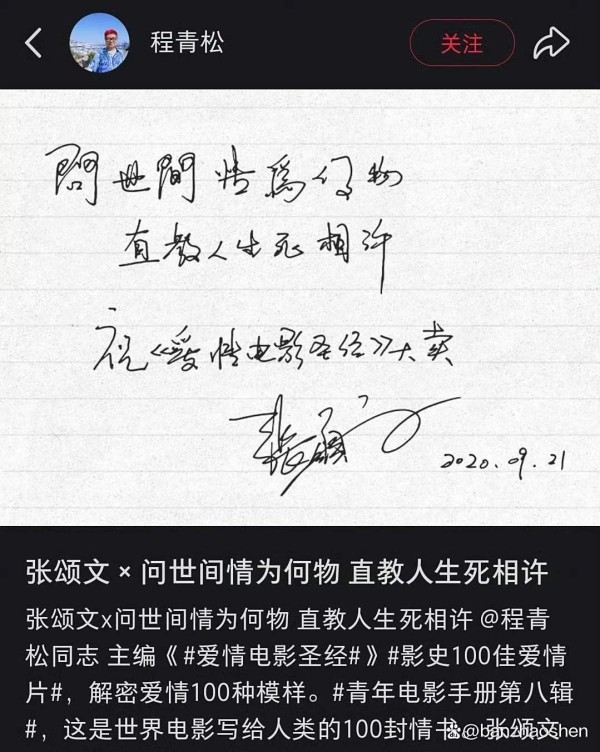 程青松
关注
問世間情為何物
直教人生死相許
祝《爱情电影圣经》大卖
张颂文
2020.09.21
张颂文 × 问世间情为何物 直教人生死相许
张颂文x问世间情为何物 直教人生死相许 @程青
松同志 主编《#爱情电影圣经#》#影史100佳爱情
片#，解密爱情100种模样。#青年电影手册第八辑
#，这是世界电影写给人类的100封情书。张颂文
@banzhaoshen